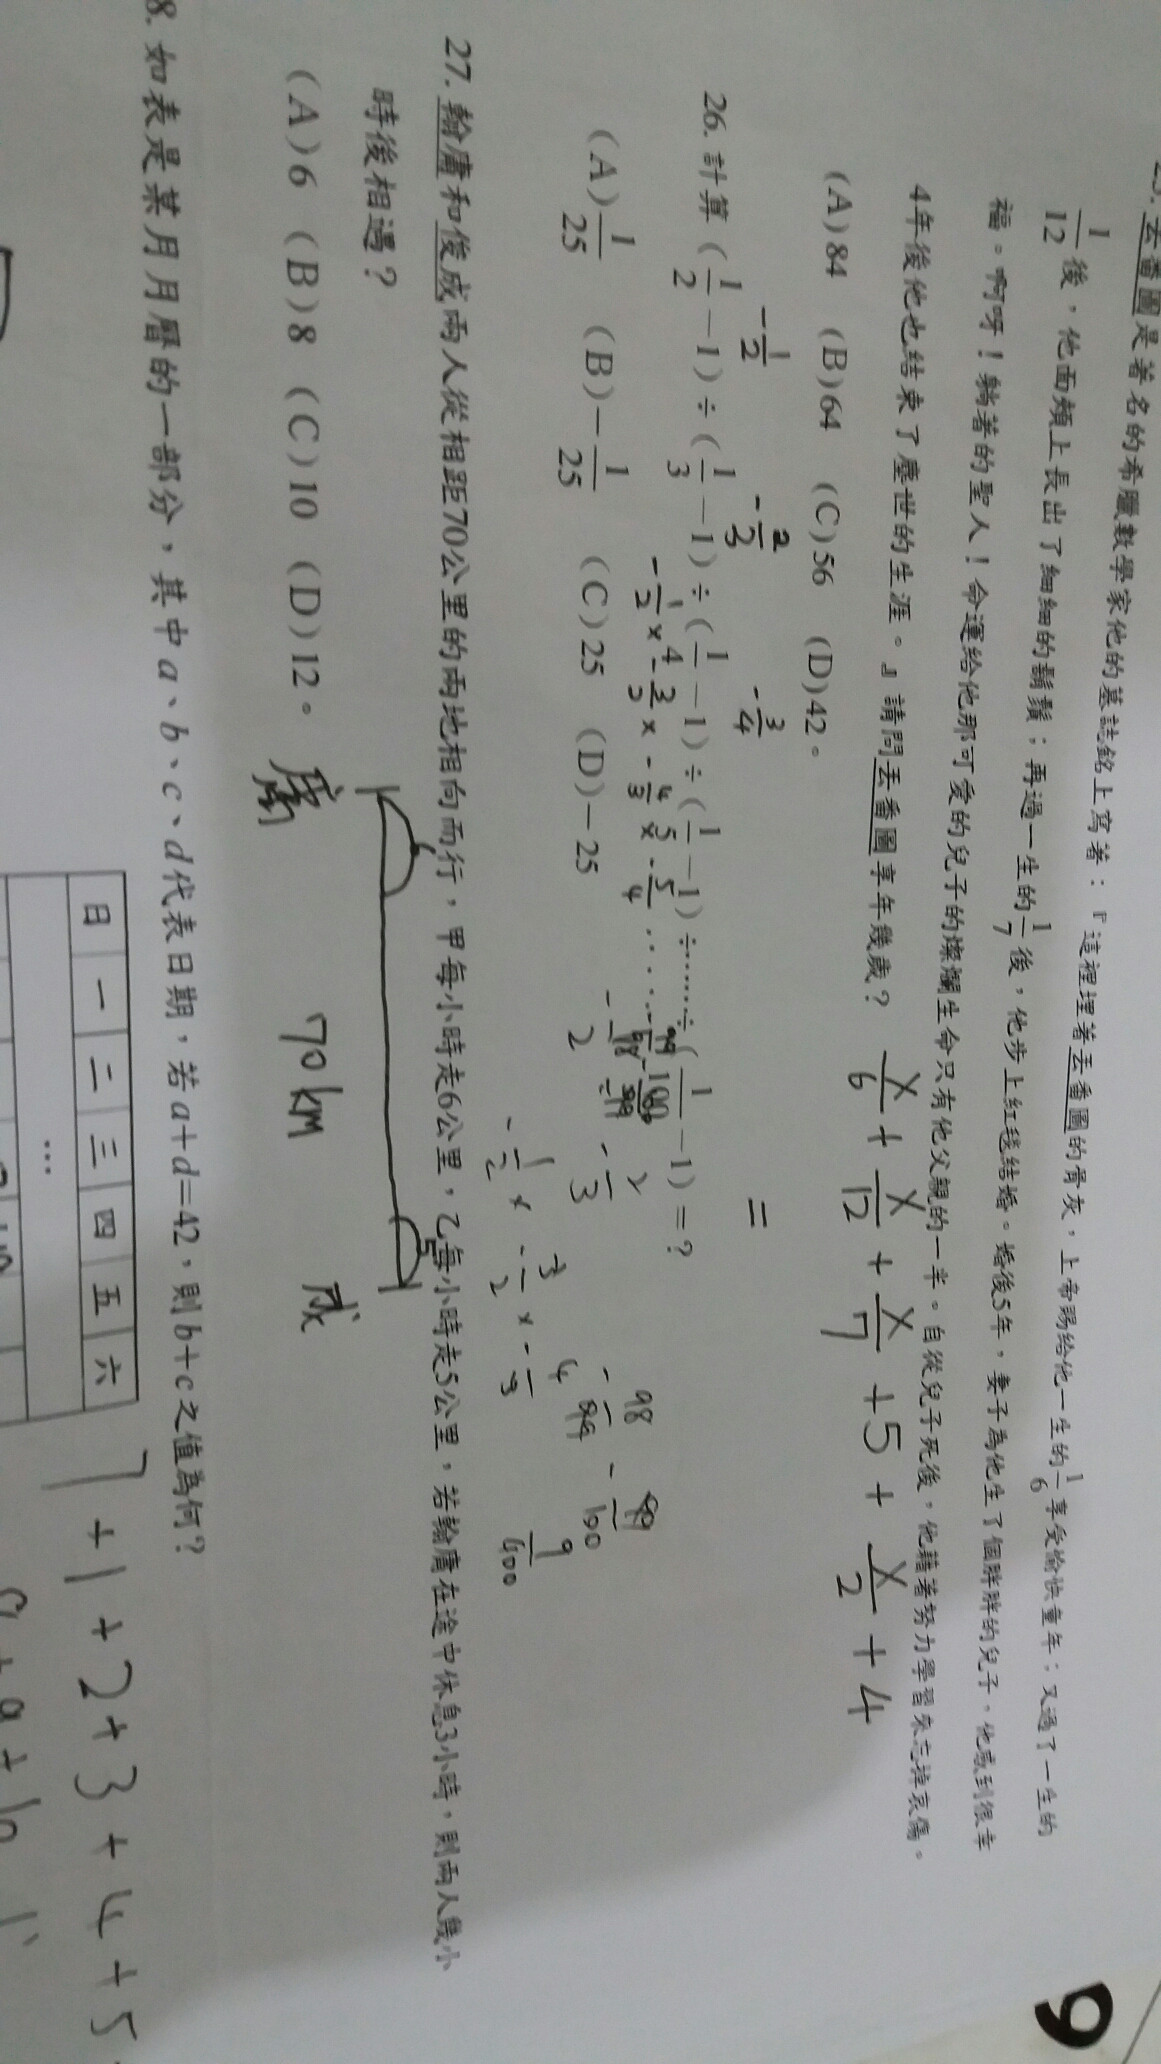 25. 丟番圖是著名的希臘數學家他的墓誌銘上寫著:『這裡埋著丟番圖的骨灰,上帝賜給他一生的1/6享受愉快童年;又過了一生的
1/12後,他面頰上長出了細細的鬍鬚;再過一生的1/7後,他步上紅毯結婚。婚後5年,妻子為他生了個胖胖的兒子,他感到很幸
福。啊呀!躺著的聖人!命運給他那可愛的兒子的燦爛生命只有他父親的一半。自從兒子死後,他藉著努力學習來忘掉哀傷。
4年後他也結束了塵世的生涯。』請問丟番圖享年幾歲?
x/6 + x/12 + x/7 + 5 + x/2 + 4
(A)84 (B)64 (C)56 (D)42。
=
-1/2 -2/3 -3/4
26. 計算 (1/2-1)÷(1/3-1)÷(1/4-1)÷(1/5-1)÷……÷(1/100-1)=?
-1/2 × -3/2 × -4/3 × -5/4 ……
-1/2 -2/3 -98/99 -99/100
(A)1/25 (B)-1/25 (C)25 (D)-25
-1/2 × -3/2 × -4/3
9/400
27. 翰庸和俊成兩人從相距70公里的兩地相向而行,甲每小時走6公里,乙每小時走5公里,若翰庸在途中休息3小時,則兩人幾小
時後相遇?
(A)6 (B)8 (C)10 (D)12。
70km
成
8. 如表是某月月曆的一部分,其中a、b、c、d代表日期,若a+d=42,則b+c之值為何?
日 一 二 三 四 五 六
…
1+2+3+4+5
9